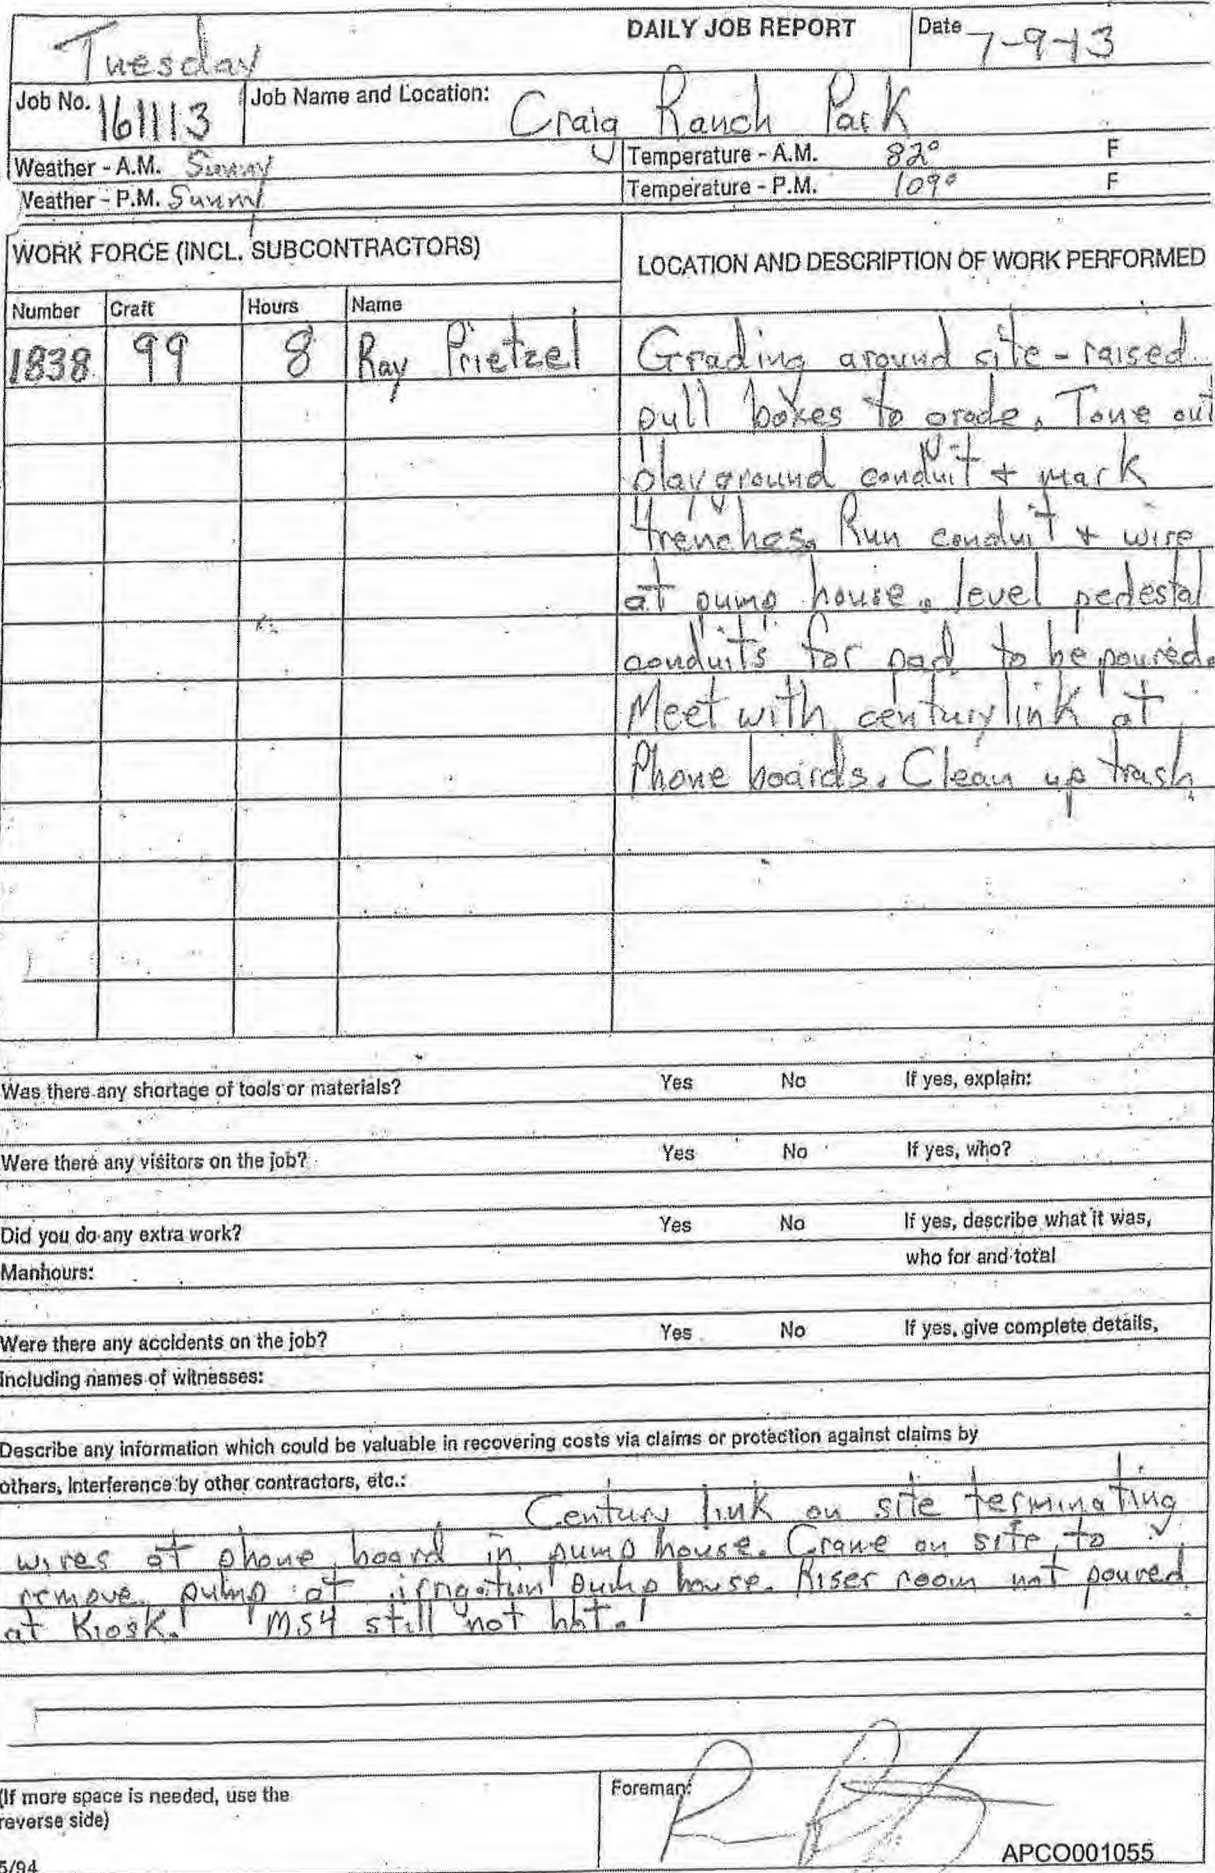 Tuesday
DAILY JOB REPORT
Date 7-9-13
Job No. 161113
Job Name and Location: Craig Ranch Park
Weather - A.M. Sunny
Temperature - A.M. 82° F
Weather - P.M. Sunny
Temperature - P.M. 109° F
WORK FORCE (INCL. SUBCONTRACTORS)
LOCATION AND DESCRIPTION OF WORK PERFORMED
Number Craft Hours Name
1838 99 8 Ray Prietzel
Grading around site - raised
pull boxes to grade. Tone out
playground conduit + mark
trenches. Run conduit + wire
at pump house. level pedestal
conduits for pad to be poured.
Meet with centurylink at
Phone boards. Clean up trash
Was there any shortage of tools or materials? Yes No If yes, explain:
Were there any visitors on the job? Yes No If yes, who?
Did you do any extra work? Yes No If yes, describe what it was,
who for and total
Manhours:
Were there any accidents on the job? Yes No If yes, give complete details,
including names of witnesses:
Describe any information which could be valuable in recovering costs via claims or protection against claims by
others, Interference by other contractors, etc.:
Century link on site terminating
wires at phone board in pump house. Crane on site to
remove pump at irrigation pump house. Riser room not poured
at Kiosk. MS4 still not hot.
(If more space is needed, use the
reverse side)
Foreman:
5/94
APCO001055